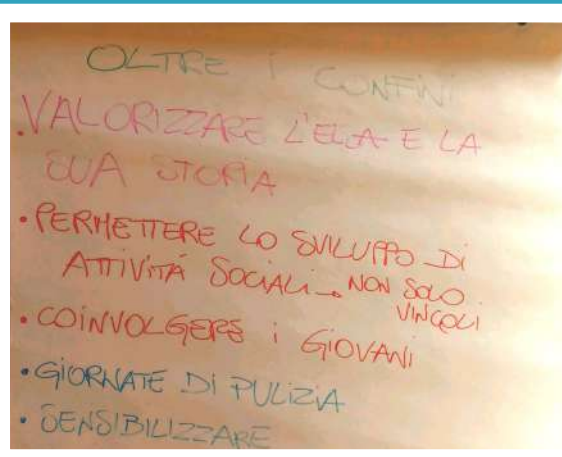 OLTRE I CONFINI
• VALORIZZARE L'ELSA E LA
SUA STORIA
• PERMETTERE LO SVILUPPO DI
ATTIVITÁ SOCIALI → NON SOLO
VINCOLI
• COINVOLGERE i GIOVANI
• GIORNATE DI PULIZIA
• SENSIBILIZZARE